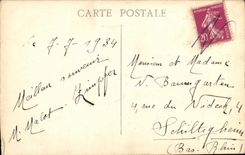 CARTE POSTALE
le 7-7-1934
Meilleur souvenir
M. Malot
Monsieur et Madame
N. Baumgarten
4, rue du Niedeck, 4
Schiltigheim
(Bas-Rhin)